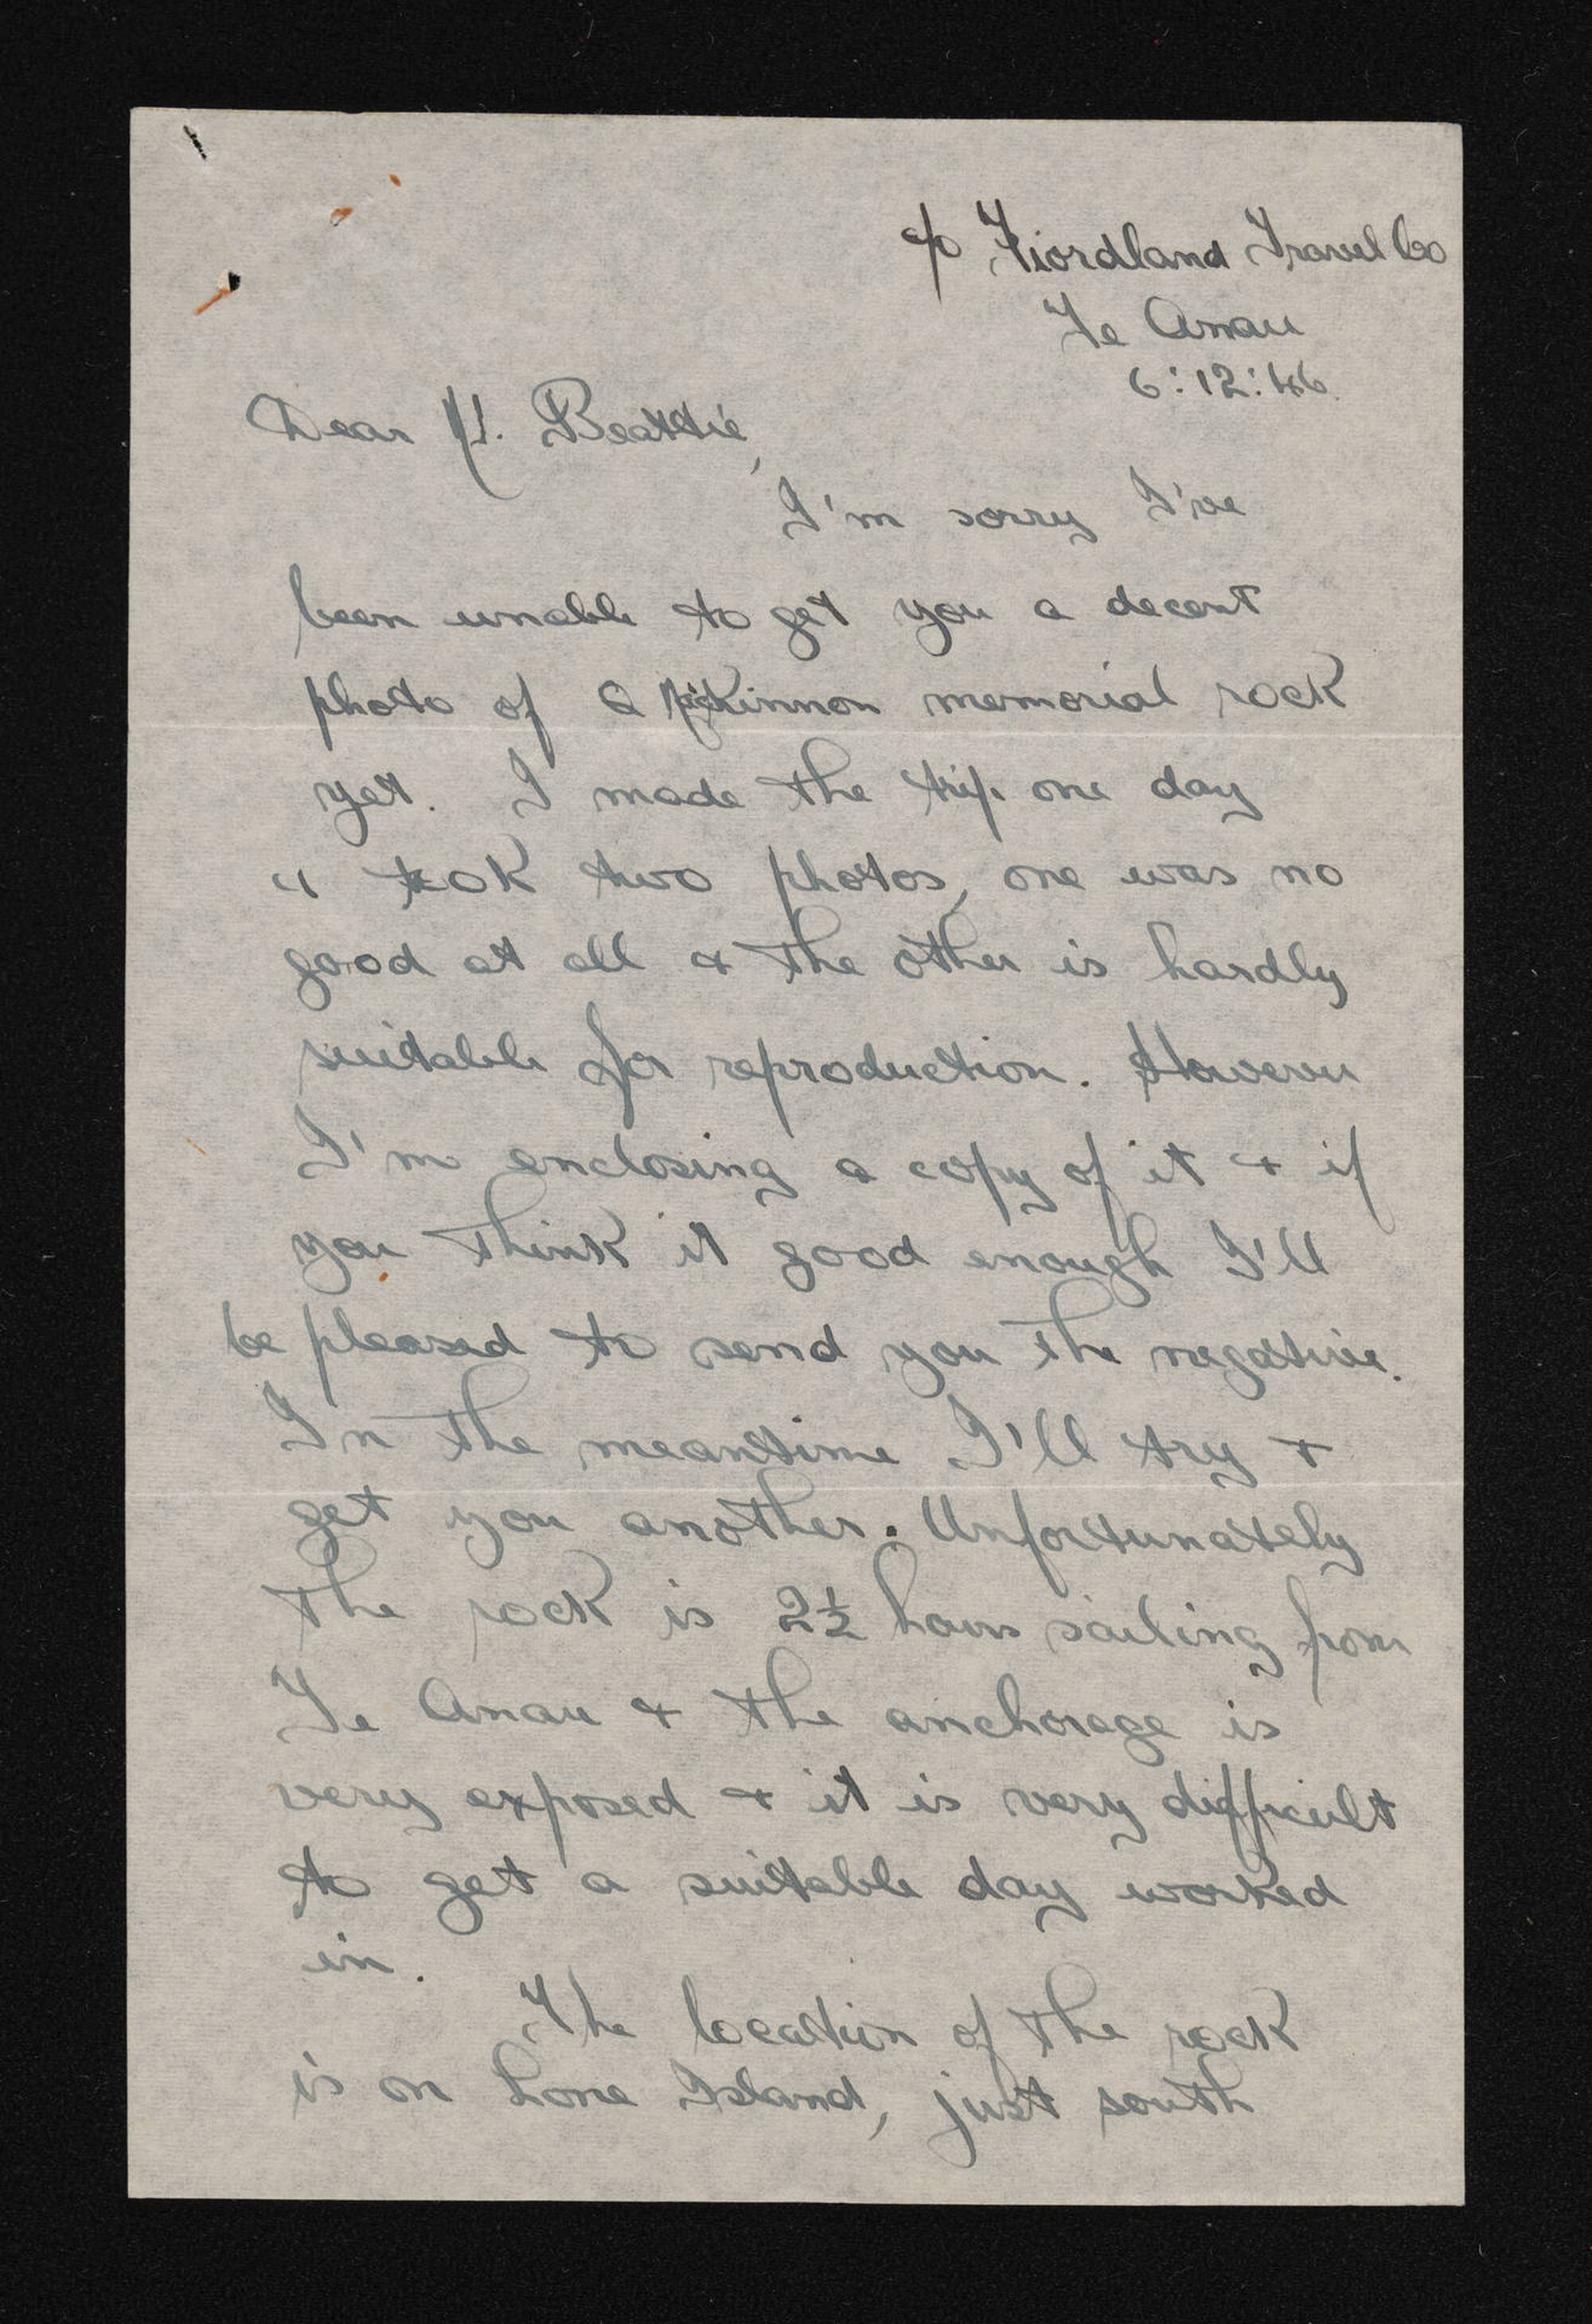 c/o Fiordland Travel Co
Te Anau
6:12:46.
Dear H. Beattie,
I'm sorry I've
been unable to get you a decent
photo of Q McKinnon memorial rock
yet. I made the trip one day
& took two photos, one was no
good at all & the other is hardly
suitable for reproduction. However
I'm enclosing a copy of it & if
you think it good enough I'll
be pleased to send you the negative.
In the meantime I'll try &
get you another. Unfortunately
the rock is 2½ hours sailing from
Te Anau & the anchorage is
very exposed & it is very difficult
to get a suitable day worked
in.
The location of the rock
is on Lone Island, just south